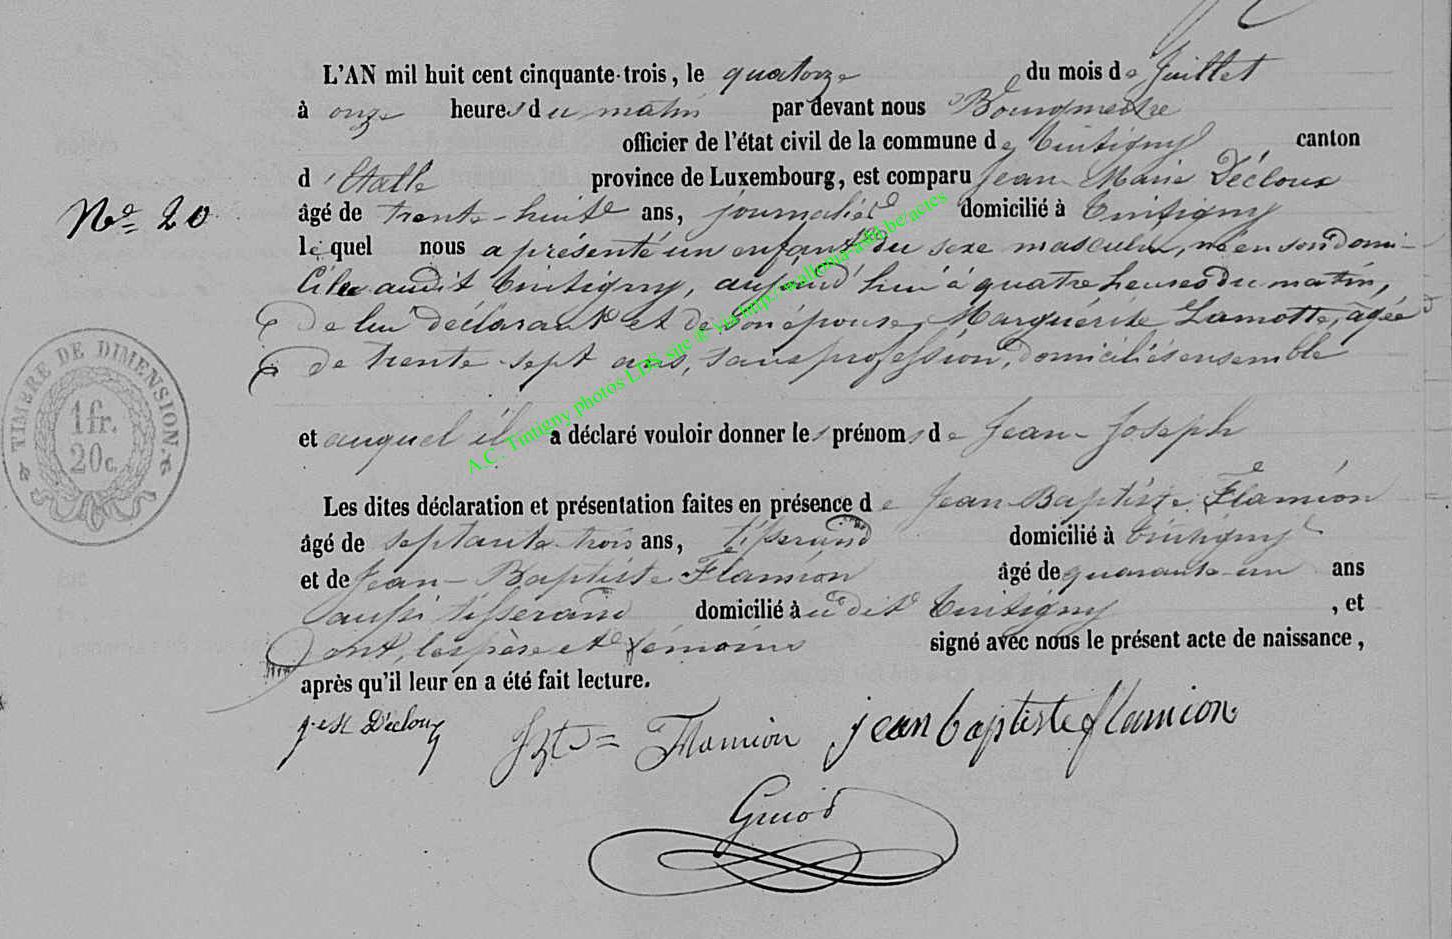 L'AN mil huit cent cinquante-trois, le quatorze du mois de Juillet
à onze heures du matin par devant nous Bourgmestre
officier de l'état civil de la commune de Tintigny canton
d'Etalle province de Luxembourg, est comparu Jean Marie Décloux
Nº 20
âgé de trente-huit ans, journalier domicilié à Tintigny
lequel nous a présenté un enfant du sexe masculin, né en son domi-
cile audit Tintigny, aujourd'hui à quatre heures du matin,
de lui déclarant et de son épouse, Marguérite Lamotte, agée
de trente-sept ans, sans profession, domiciliés ensemble
TIMBRE DE DIMENSION.
1fr.
20c.
et auquel il a déclaré vouloir donner les prénoms de Jean-Joseph
Les dites déclaration et présentation faites en présence de Jean Baptiste Flamion
âgé de septante trois ans, tisserand domicilié à Tintigny
et de Jean-Baptiste Flamion âgé de quarante-un ans
aussi tisserand domicilié à dit Tintigny, et
ont, les père et témoins signé avec nous le présent acte de naissance,
après qu'il leur en a été fait lecture.
Décloux Flamion jean baptiste flamion
Guiot
A.C. Tintigny photos LDS site © via http://wallonia-asbl.be/actes